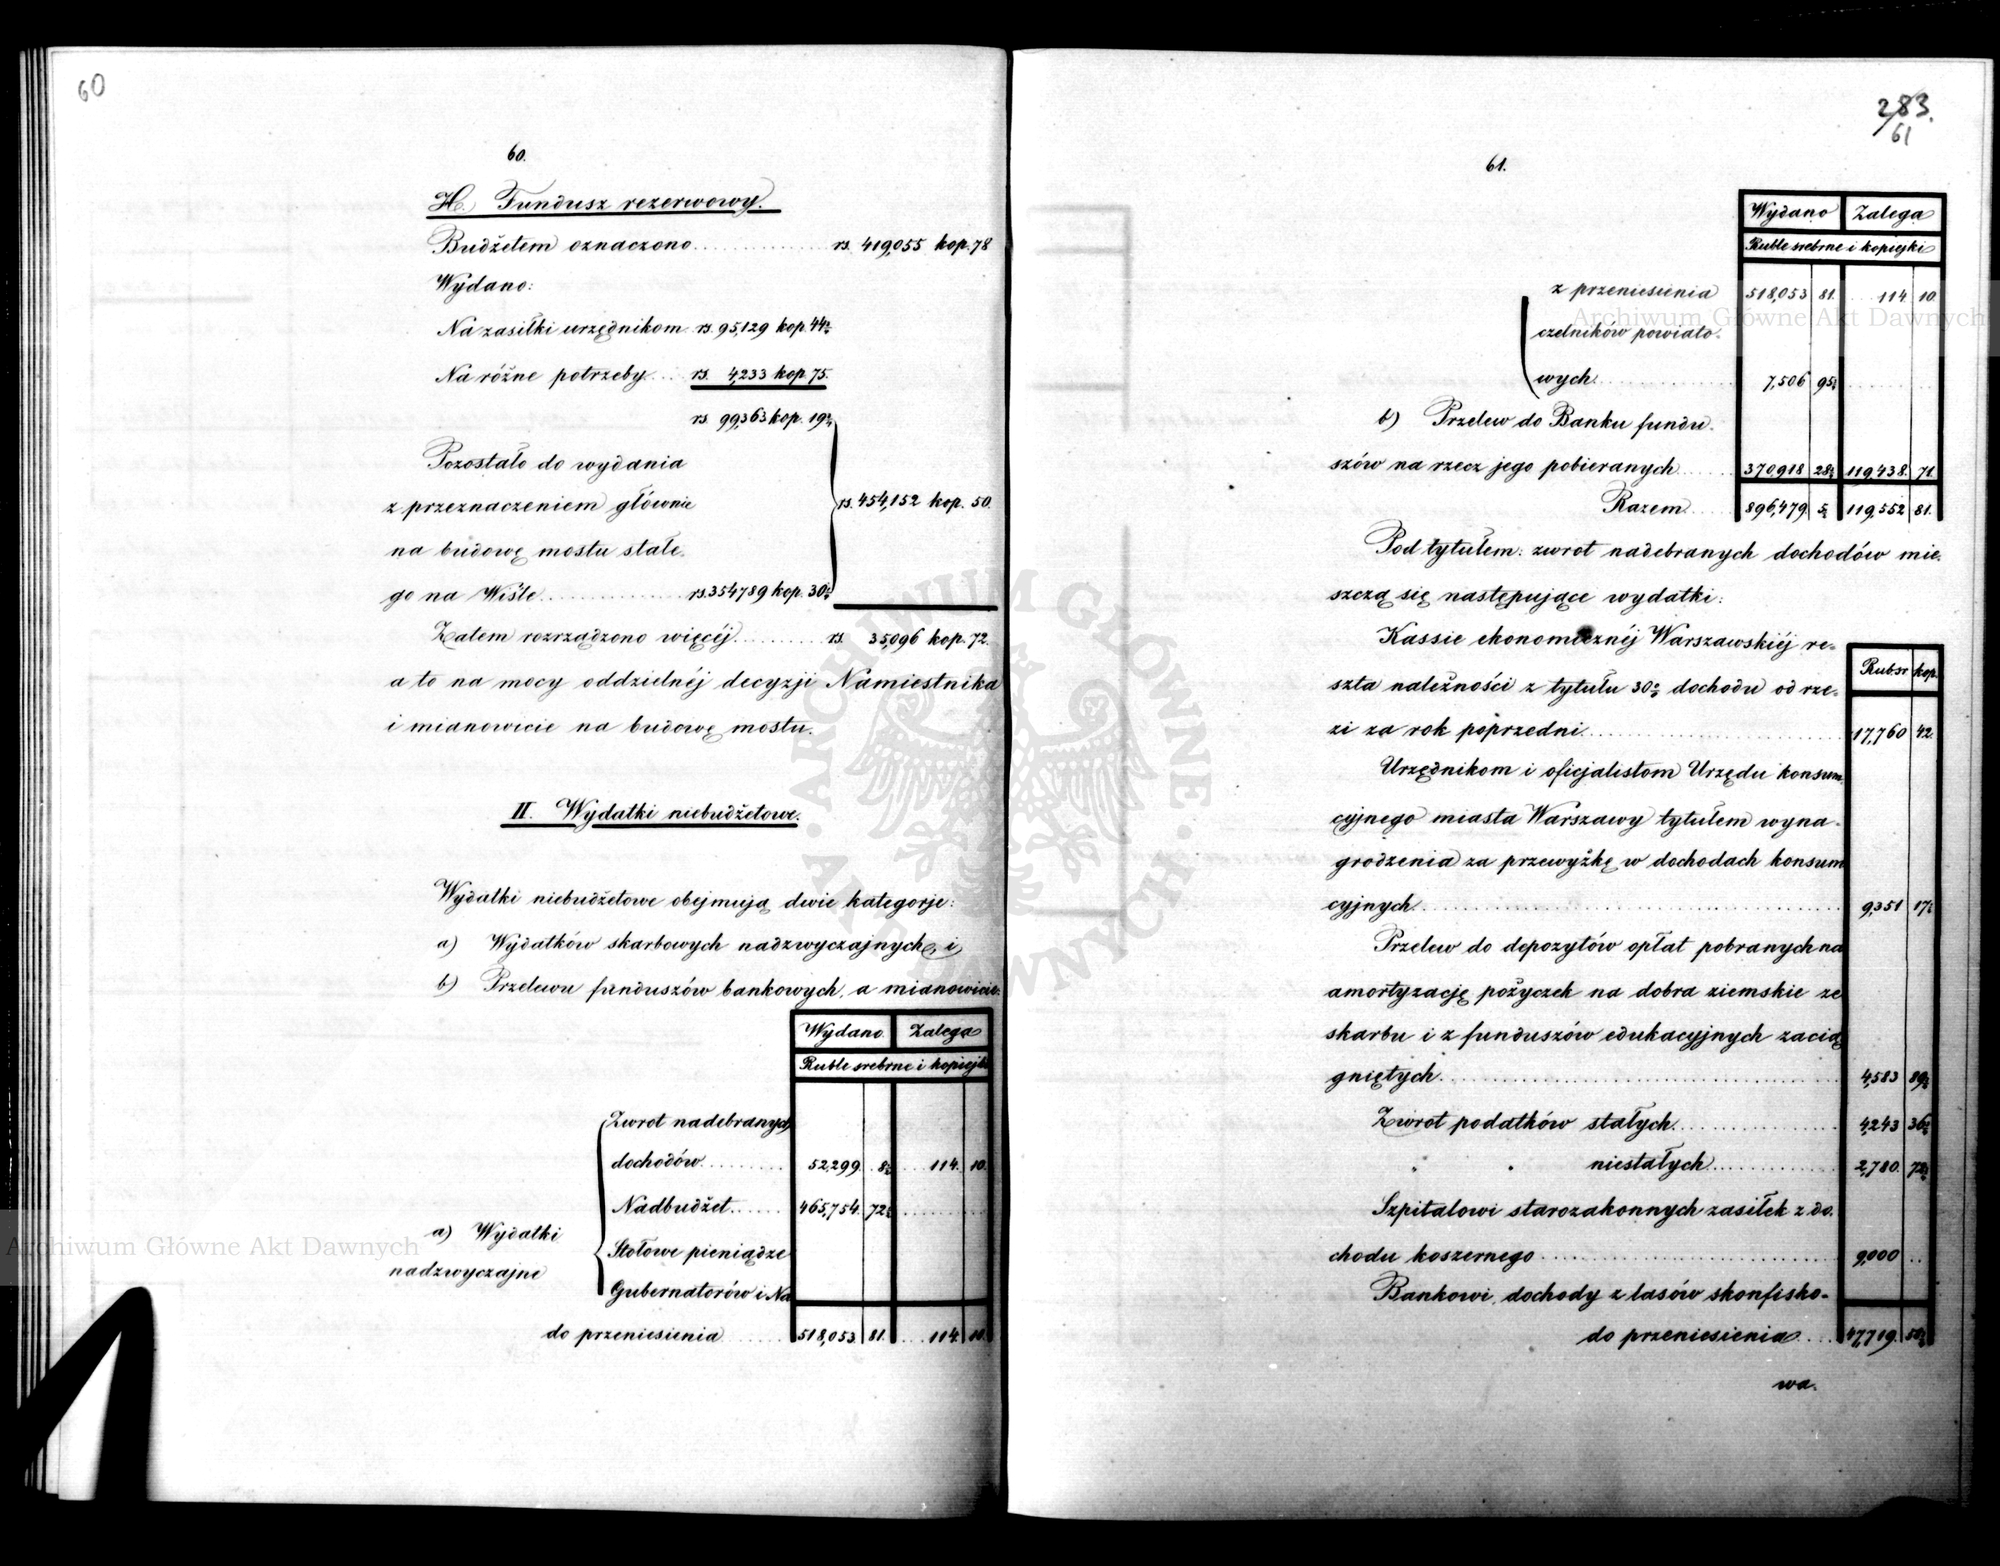 60
60.
H. Fundusz rezerwowy.
Budżetem oznaczono rs. 419,055 kop. 78
Wydano:
Na zasiłki urzędnikom rs. 95,129 kop. 44½
Na różne potrzeby rs. 4,233 kop. 75.
rs. 99,363 kop. 19½
Pozostało do wydania
z przeznaczeniem głównie
rs. 454,152 kop. 50.
na budowę mostu stałe-
go na Wiśle rs. 354789 kop. 30½
Zatem rozrządzono więcéj rs. 35,096 kop. 72.
a to na mocy oddzielnéj decyzji Namiestnika
i mianowicie na budowę mostu.
II. Wydatki niebudżetowe.
Wydatki niebudżetowe obejmują dwie kategorje:
a) Wydatków skarbowych nadzwyczajnych, i
b) Przelewu funduszów bankowych, a mianowicie:
Wydano Zalega
Ruble srebrne i kopiejki
Zwrot nadebranych
dochodów 52,299. 8½ 114. 10.
Nadbudżet 465,754. 72½
a) Wydatki
nadzwyczajne
Stołowe pieniądze
Gubernatorów i Na
do przeniesienia 518,053 81. 114. 10.
283.
61
61.
Wydano Zalega
Ruble srebrne i kopiejki
z przeniesienia 518,053 81. 114 10.
czelników powiato-
wych 7,506 95½
b) Przelew do Banku fundu-
szów na rzecz jego pobieranych 370918 28½ 119,438. 71.
Razem 896,479 5 119,552 81.
Pod tytułem: zwrot nadebranych dochodów mie-
szczą się następujące wydatki:
Rub.sr. kop.
Kassie ekonomicznéj Warszawskiéj re-
szta należności z tytułu 30% dochodu od rze-
zi za rok poprzedni 17,760 42.
Urzędnikom i oficjalistom Urzędu konsum-
cyjnego miasta Warszawy tytułem wyna-
grodzenia za przewyżkę w dochodach konsum
cyjnych 9,351 17½
Przelew do depozytów opłat pobranych na
amortyzację pożyczek na dobra ziemskie ze
skarbu i z funduszów edukacyjnych zacią
gniętych 4,583 89½
Zwrot podatków stałych 4,243 36½
" " niestałych 2,780. 72½
Szpitalowi starozakonnych zasiłek z do-
chodu koszernego 9,000
Bankowi, dochody z lasów skonfisko-
do przeniesienia 47,719. 58½
wa.
Archiwum Główne Akt Dawnych
Archiwum Główne Akt Dawnych
ARCHIWUM GŁÓWNE AKT DAWNYCH